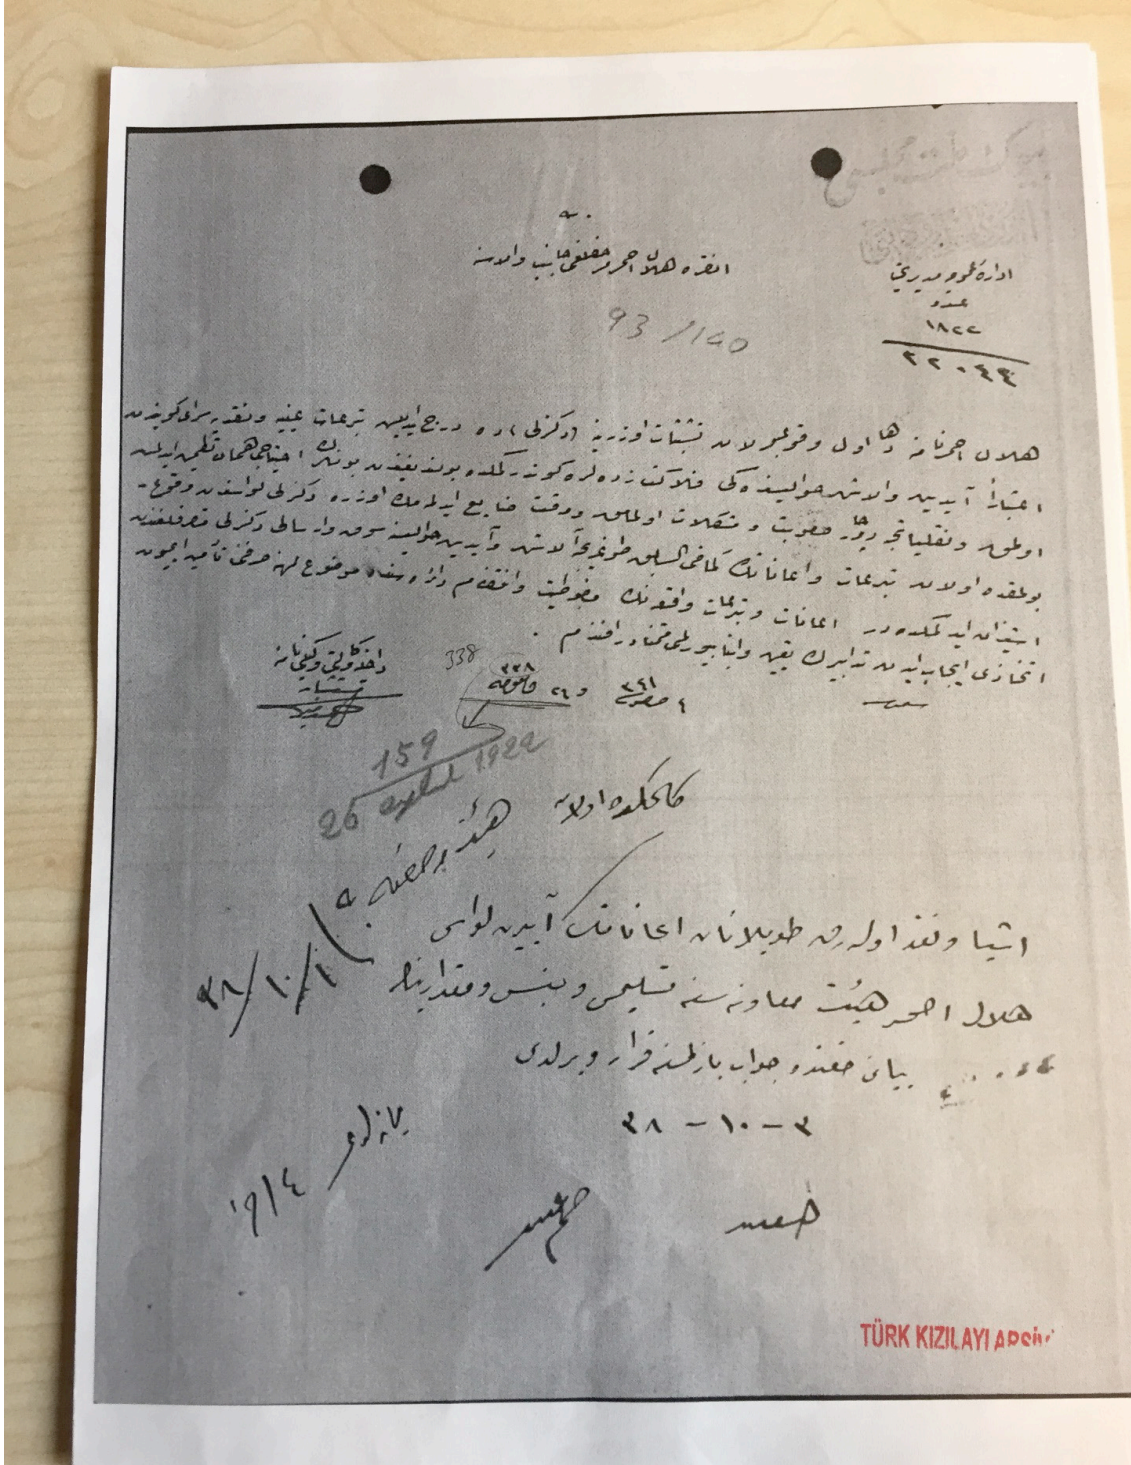 بيوك ملت مجلسى
اداره عموميه مديريتى
عدد
١٨٢٢
٢٢٠٤٤
انقره هلال احمر مرخصلغى جانب والاسنه
93/140
هلال احمر نامنه دها اول وقوعبولان تشبثات اوزرينه (دكزلى) ده درج ايديلن تبرعات عينيه ونقديه سراى كويندن
اعتباراً آيدين والاشهر حواليسنده كى فلاكتزده لره كوندرلمكده بولنديغندن بونلرك احتياجى همان تطمين ايدلمش
اولمق ونقليات صعوبت ومشكلات اولمامق ووقت ضايع ايدلمامك اوزره دكزلى لواسندن وقوع
بولمقده اولان تبرعات واعاناتك كمافى السابق طوغريجه آلاشهر وآيدين حواليسنه سوق وارسالى دكزلى متصرفلغندن
استيذان ايدلمكده در اعانات وتبرعات واقعه نك مضبوطيت وانتظام دائره سنده موضوع لهنه صرفنى تأمين ايچون
اتخاذى ايجاب ايدن تدابيرك تعيين وانبا بيورلمسى متمنادر افندم .
٤ صفر ٣٤١ و ٢٦ ٣٣٨
338
داخليه وكالتى وكيلى نامنه
مستشار
159
26 eylul 1922
هيئت مرخصه يه
٣٨/١٠/١
اشيا ونقد اوله رق طوپلانان اعاناتك آيدين لواسى
هلال احمر هيئت معاونه سنه تسليمى وجنس ومقدارينك
بيانى حقنده جواب يازلمسنه قرار ويرلدى
٣ - ١٠ - ٣٨
يازلدى
TÜRK KIZILAYI ARŞİVİ